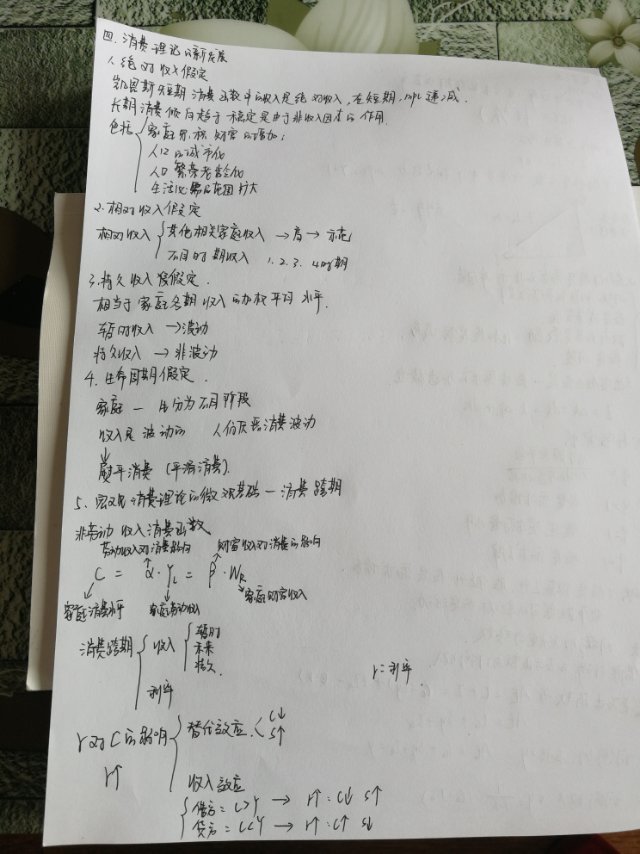 四.消费理论的新发展
1.绝对收入假定
凯恩斯短期消费函数中的收入是绝对收入,在短期,MPC递减.
长期消费倾向趋于一稳定是由于非收入因素的作用.
包括 家庭累积财富的增加;
人口的城市化
人口老龄化
生活必需品范围扩大
2.相对收入假定
相对收入 其他相关家庭收入 → 高 → 示范
不同时期收入 1.2.3.4时期
3.持久收入假定.
相当于家庭各期收入的加权平均水平.
暂时收入 → 波动
持久收入 → 非波动
4.生命周期假定.
家庭一生分为不同阶段
收入是波动的 人们厌恶消费波动
↓
熨平消费 (平滑消费).
5.宏观消费理论的微观基础—消费跨期
非劳动收入消费函数
劳动收入对消费影响 财富收入对消费的影响
C = α·YL = β·WR
家庭消费水平 家庭劳动收入 家庭财富收入
消费跨期 收入 暂时
未来
持久.
利率
r=利率.
r对C的影响 替代效应. C↓
S↑
r↑
收入效应
借方=C>Y → r↑:C↓ S↑
贷方=C<Y → r↑:C↑ S↓